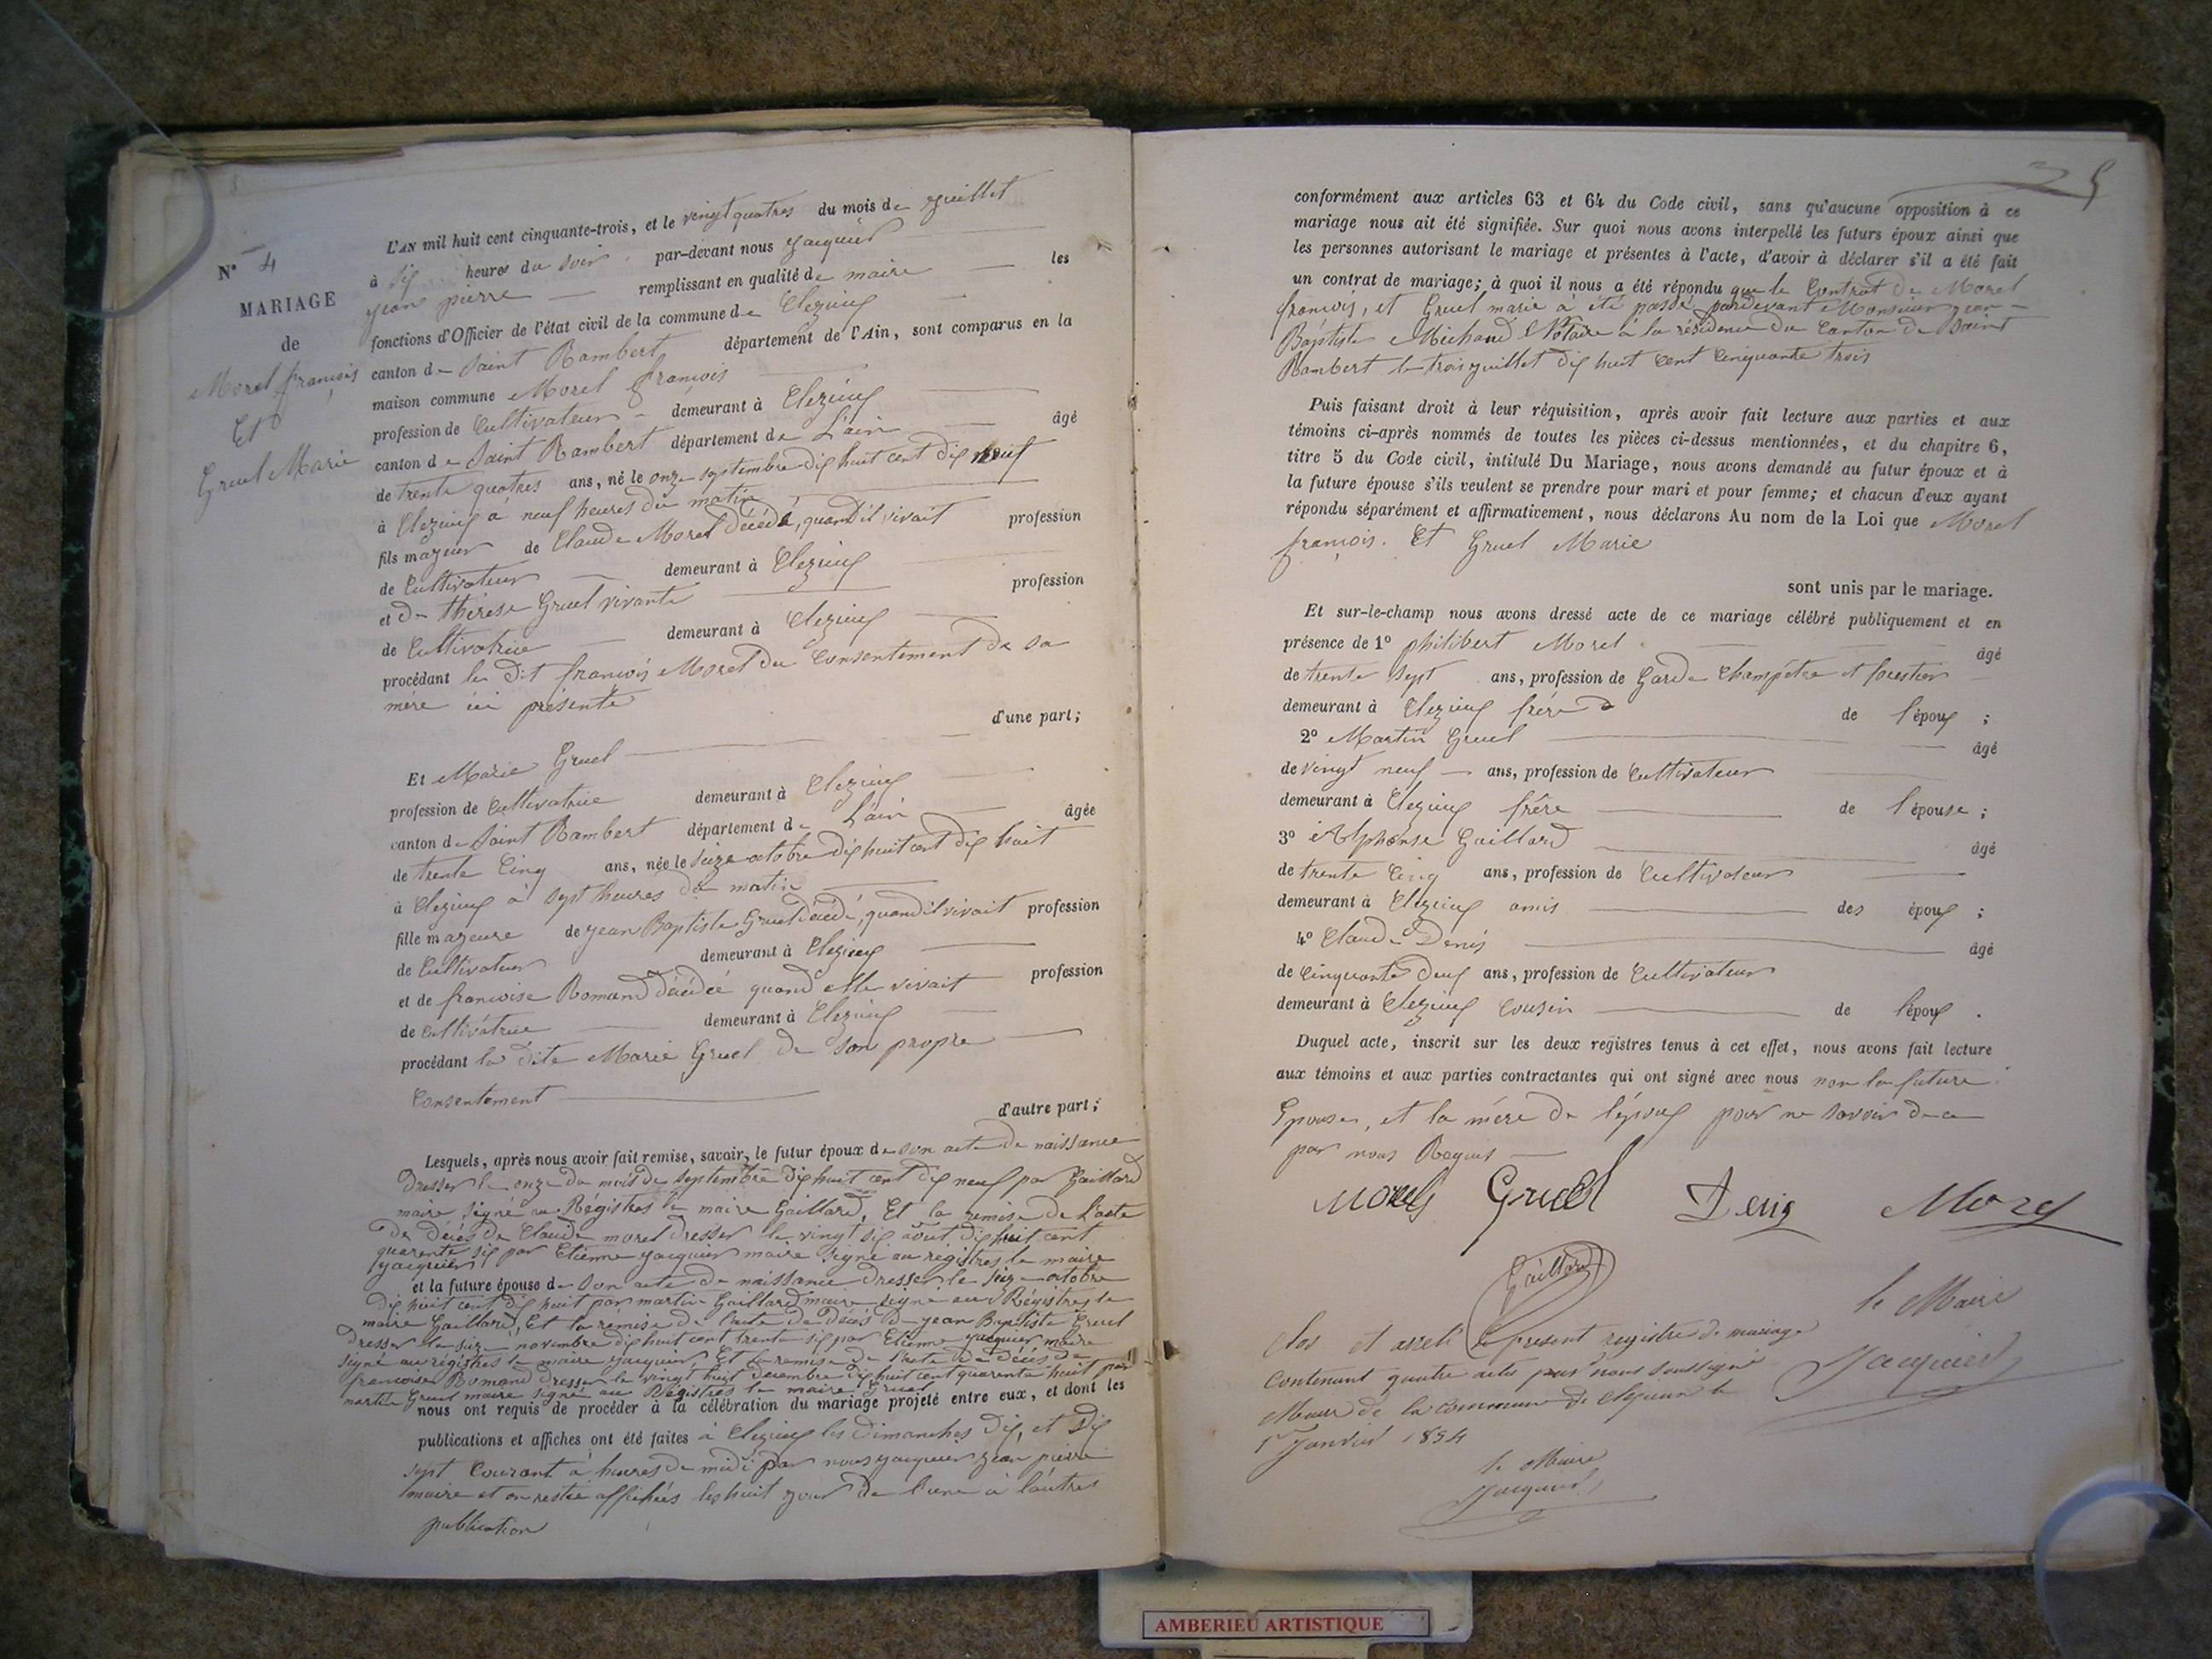 N° 4
MARIAGE
de
Morel françois
Et
Gruel Marie
L'AN mil huit cent cinquante-trois, et le vingt quatres du mois de juillet
à six heures du soir par-devant nous jacquier
jean pierre remplissant en qualité de maire les
fonctions d'Officier de l'état civil de la commune de Clezieux
canton de Saint Rambert département de l'Ain, sont comparus en la
maison commune Morel françois
profession de Cultivateur demeurant à Clezieux
canton de Saint Rambert département de L'ain âgé
de trente quatres ans, né le onze septembre dix huit cent dix neuf
à Clezieux à neuf heures du matin
fils majeur de Claude Morel décédé, quand il vivait profession
de Cultivateur demeurant à Clezieux
et de thérèse Gruel vivante profession
de Cultivatrice demeurant à Clezieux
procédant le dit françois Morel du Consentement de sa
mère ici présente
d'une part;
Et Marie Gruel
profession de Cultivatrice demeurant à Clezieux
canton de Saint Rambert département de L'ain âgée
de trente Cinq ans, née le seize octobre dix huit cent dix huit
à Clezieux à sept heures du matin
fille majeure de jean Baptiste Gruel décédé, quand il vivait profession
de Cultivateur demeurant à Clezieux
et de francoise Romand décédée quand elle vivait profession
de cultivatrice demeurant à Clezieux
procédant la dite Marie Gruel de son propre
Consentement
d'autre part;
Lesquels, après nous avoir fait remise, savoir, le futur époux de son acte de naissance
dresser le onze du mois de septembre dix huit cent dix neuf par Gaillard
maire signé au Régistres le maire Gaillard, Et la remise de L'acte
de décès de Claude morel dresser le vingt six août dix huit cent
quarente six par Etienne jacquier maire signé au régistres le maire
jacquier
et la future épouse de son acte de naissance dresser le seize octobre
dix huit cent dix huit par martin Gaillard maire signé au Régistres le
maire Gaillard, Et la remise de l'acte de décès de jean Baptiste Gruel
dresser le seize novembre dix huit cent trente six par Etienne jacquier maire
signé au régistres le maire jacquier Et la remise de l'acte de décès de
francoise Romand dresser le vingt huit décembre dix huit cent quarente huit par
martin Gruel maire signé au Régistres le maire Gruel
nous ont requis de procéder à la célébration du mariage projeté entre eux, et dont les
publications et affiches ont été faites à Clezieux les dimanches dix, et dix
sept Courant à heures de midi par nous jacquier jean pierre
maire et on restée affichées les huit jour de l'une à l'autres
publication
conformément aux articles 63 et 64 du Code civil, sans qu'aucune opposition à ce
mariage nous ait été signifiée. Sur quoi nous avons interpellé les futurs époux ainsi que
les personnes autorisant le mariage et présentes à l'acte, d'avoir à déclarer s'il a été fait
un contrat de mariage; à quoi il nous a été répondu que le Contrat de Morel
françois, et Gruel marie à été passé pardevant Monsieur jean
Baptiste Michaud Notaire à la résidence du Canton de Saint
Rambert le trois juillet dix huit cent Cinquante trois
Puis faisant droit à leur réquisition, après avoir fait lecture aux parties et aux
témoins ci-après nommés de toutes les pièces ci-dessus mentionnées, et du chapitre 6,
titre 5 du Code civil, intitulé Du Mariage, nous avons demandé au futur époux et à
la future épouse s'ils veulent se prendre pour mari et pour femme; et chacun d'eux ayant
répondu séparément et affirmativement, nous déclarons Au nom de la Loi que Morel
françois. Et Gruel Marie
sont unis par le mariage.
Et sur-le-champ nous avons dressé acte de ce mariage célébré publiquement et en
présence de 1° philibert Morel âgé
de trente sept ans, profession de Garde Champêtre et forestier
demeurant à Clezieux frère de l'époux ;
2° Martin Gruel âgé
de vingt neuf ans, profession de Cultivateur
demeurant à Clezieux frère de l'épouse ;
3° Alphonse Gaillard âgé
de trente Cinq ans, profession de Cultivateur
demeurant à Clezieux amis des époux ;
4° Claude Denis âgé
de Cinquante deux ans, profession de Cultivateur
demeurant à Clezieux Cousin de l'époux .
Duquel acte, inscrit sur les deux registres tenus à cet effet, nous avons fait lecture
aux témoins et aux parties contractantes qui ont signé avec nous non la future
Epouse, et la mère de l'époux pour ne savoir de ce
par nous Requis
Morel Gruel Denis Morel
Gaillard
le Maire
Jacquier
Clos et arrêté le présent registre de mariage
contenant quatre actes par nous soussigné
Maire de la commune de Clezieux le
1er Janvier 1854
le Maire
Jacquier
AMBERIEU ARTISTIQUE